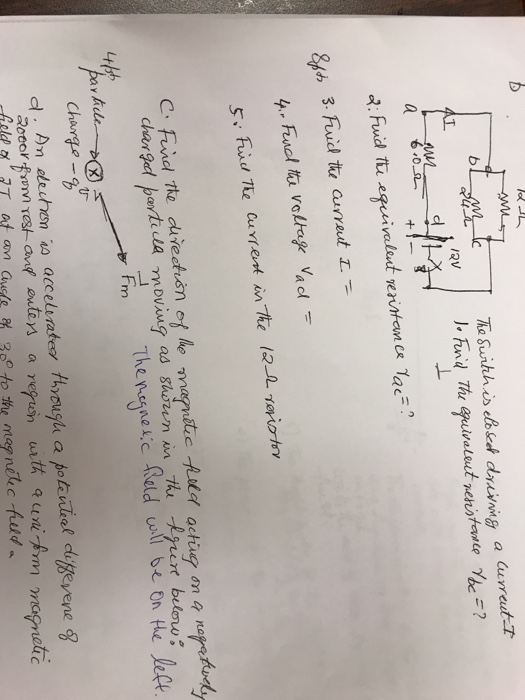 b
12Ω
b 24Ω c
ΔI
12V
a 6.0Ω d + -
The switch is closed driving a current I
1. Find the equivalent resistance rbc = ?
2. Find the equivalent resistance rac = ?
8pts 3. Find the current I =
4. Find the voltage Vad =
5. Find the current in the 12Ω resistor
C. Find the direction of the magnetic field acting on a negatively
charged particle moving as shown in the figure below.
The magnetic field will be on the left.
4pts
particle → (X) v → Fm
charge -q
d. An electron is accelerated through a potential difference of
2000V from rest and enters a region with a uniform magnetic
field of 7T at an angle of 30° to the magnetic field.